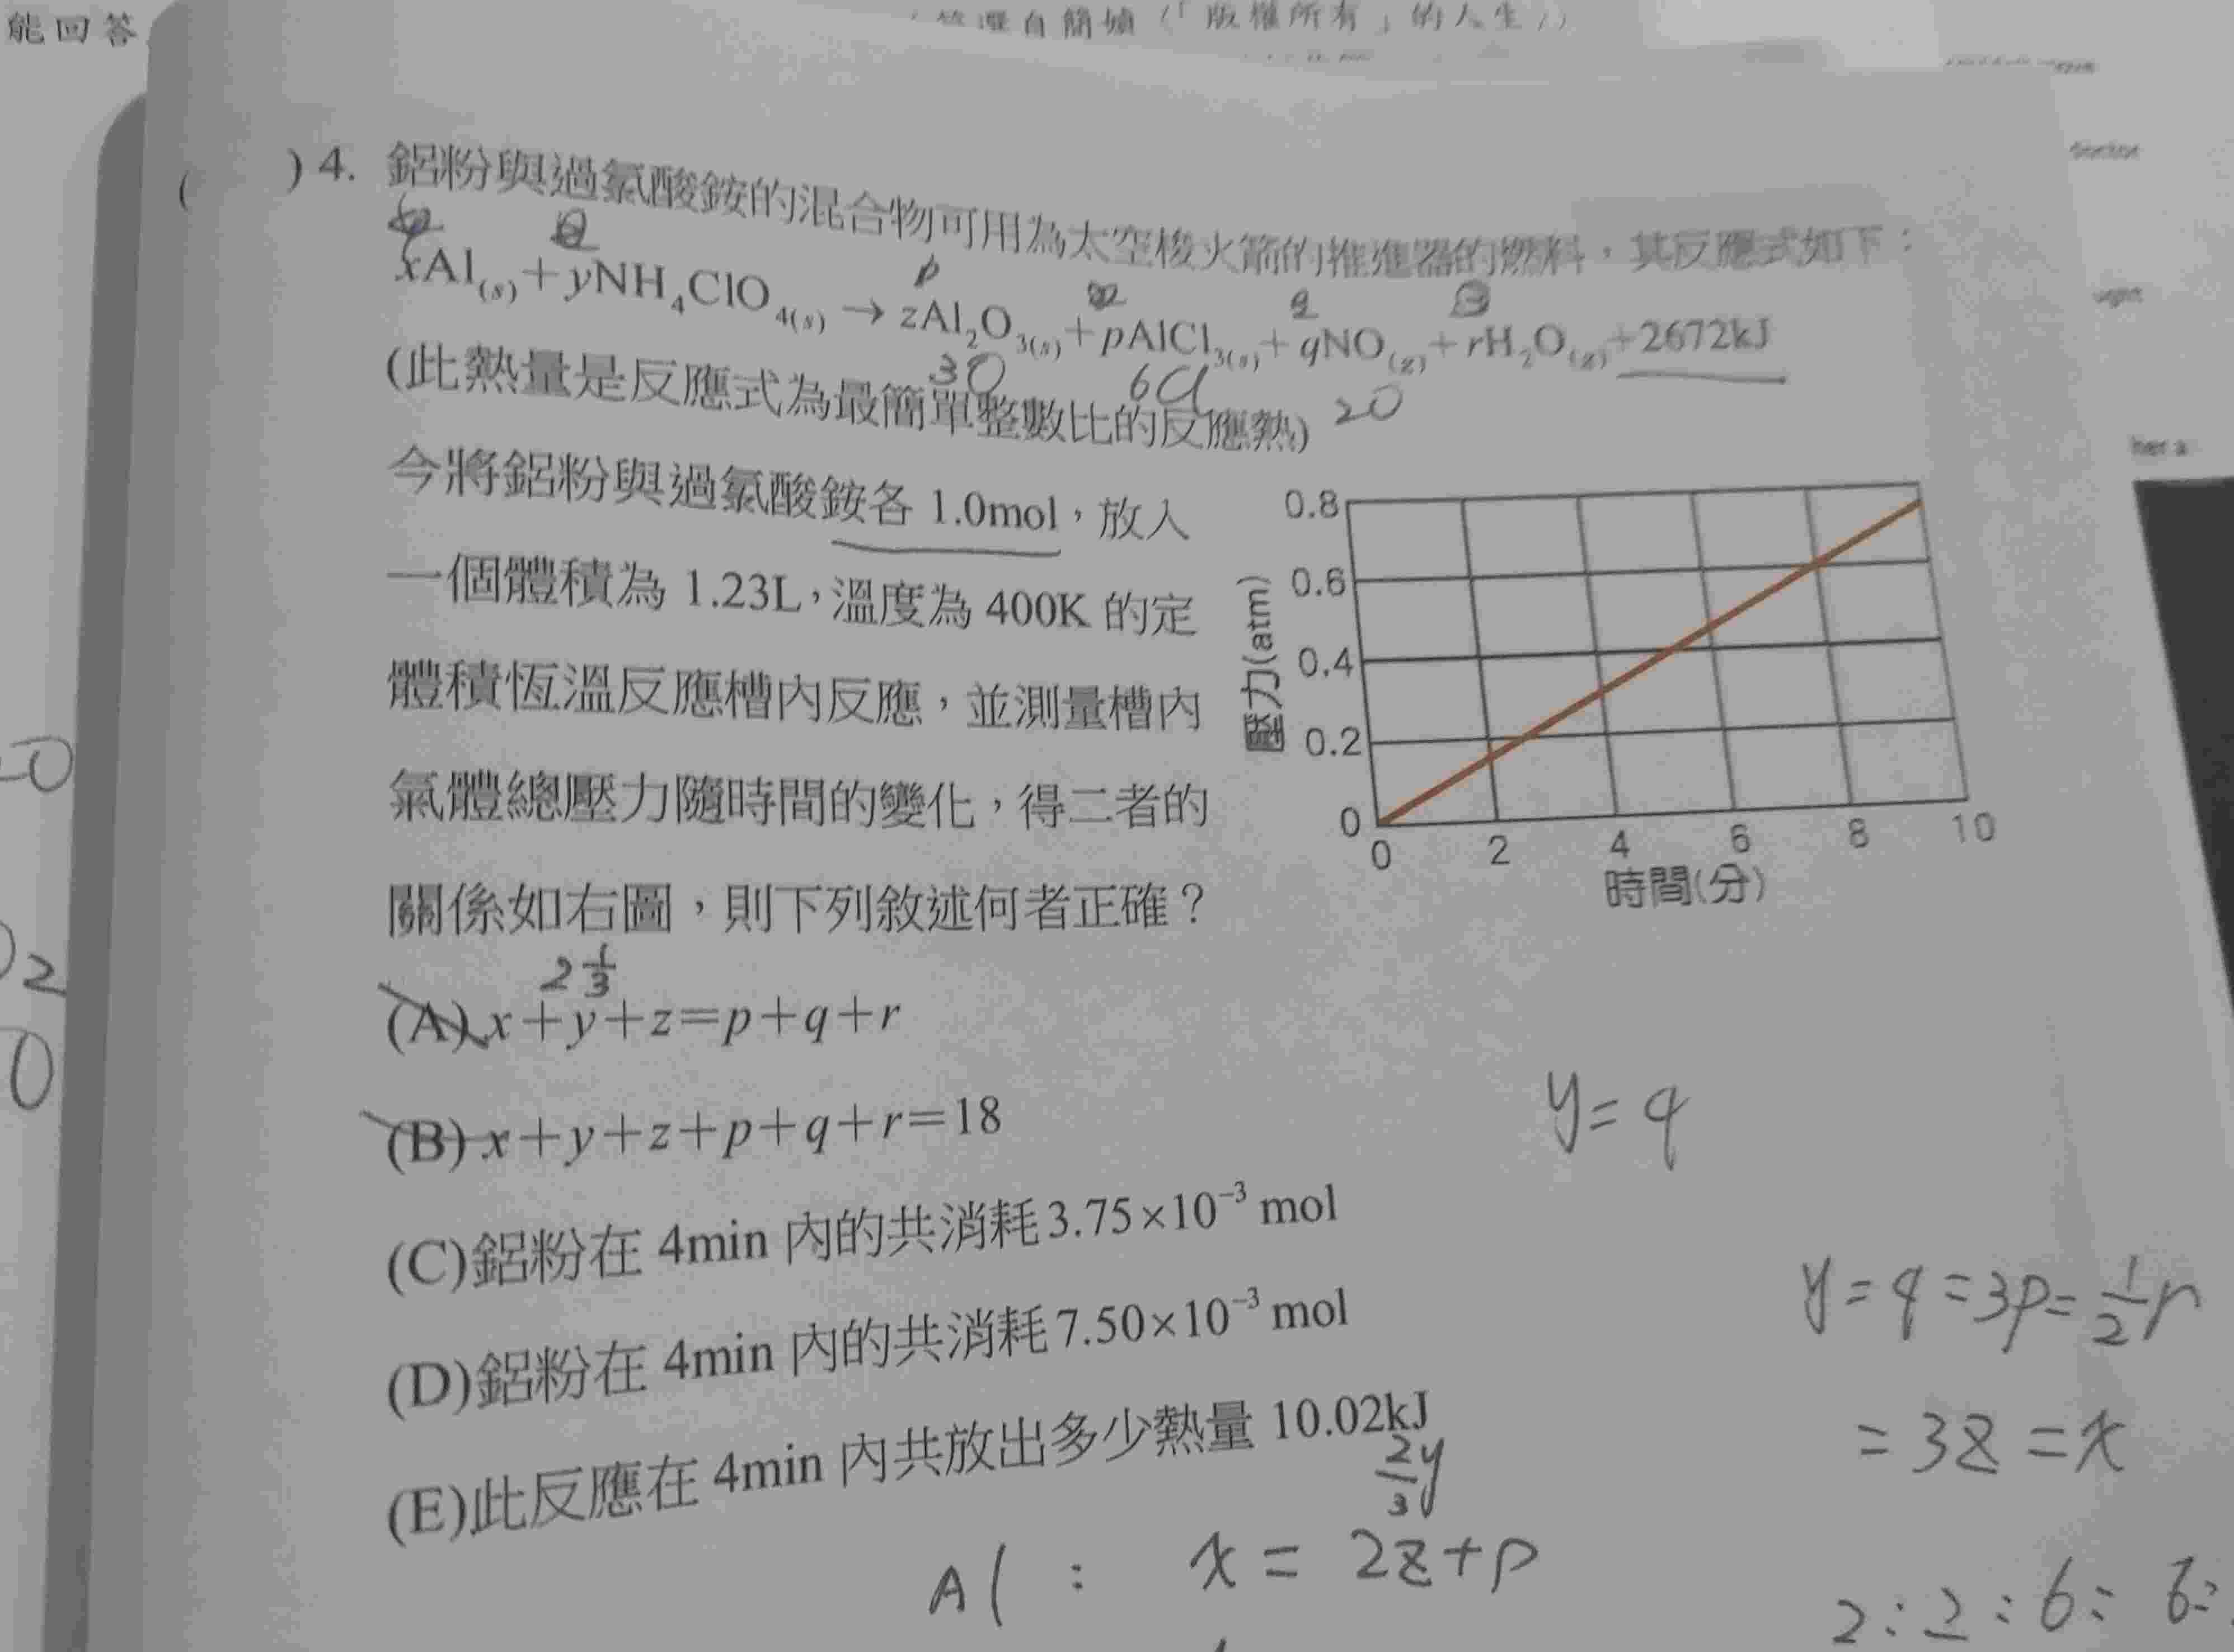 能回答
自簡媜（「版權所有」的人生）
( )4. 鋁粉與過氯酸銨的混合物可用為太空梭火箭的推進器的燃料，其反應式如下：
xAl(s)+yNH4ClO4(s)→zAl2O3(s)+pAlCl3(s)+qNO(g)+rH2O(g)+2672kJ
3O 6Cl 2O
(此熱量是反應式為最簡單整數比的反應熱)
今將鋁粉與過氯酸銨各 1.0mol，放入
一個體積為 1.23L，溫度為 400K 的定
體積恆溫反應槽內反應，並測量槽內
氣體總壓力隨時間的變化，得二者的
關係如右圖，則下列敘述何者正確？
壓力(atm)
0.8
0.6
0.4
0.2
0
0 2 4 6 8 10
時間(分)
2 1/3
(A) x+y+z=p+q+r
(B) x+y+z+p+q+r=18
(C)鋁粉在 4min 內的共消耗3.75×10⁻³ mol
(D)鋁粉在 4min 內的共消耗7.50×10⁻³ mol
(E)此反應在 4min 內共放出多少熱量 10.02kJ
2/3 y
Al : x = 2z+p
y=q
y=q=3p=1/2 r
=3z=x
2:2:6:6: